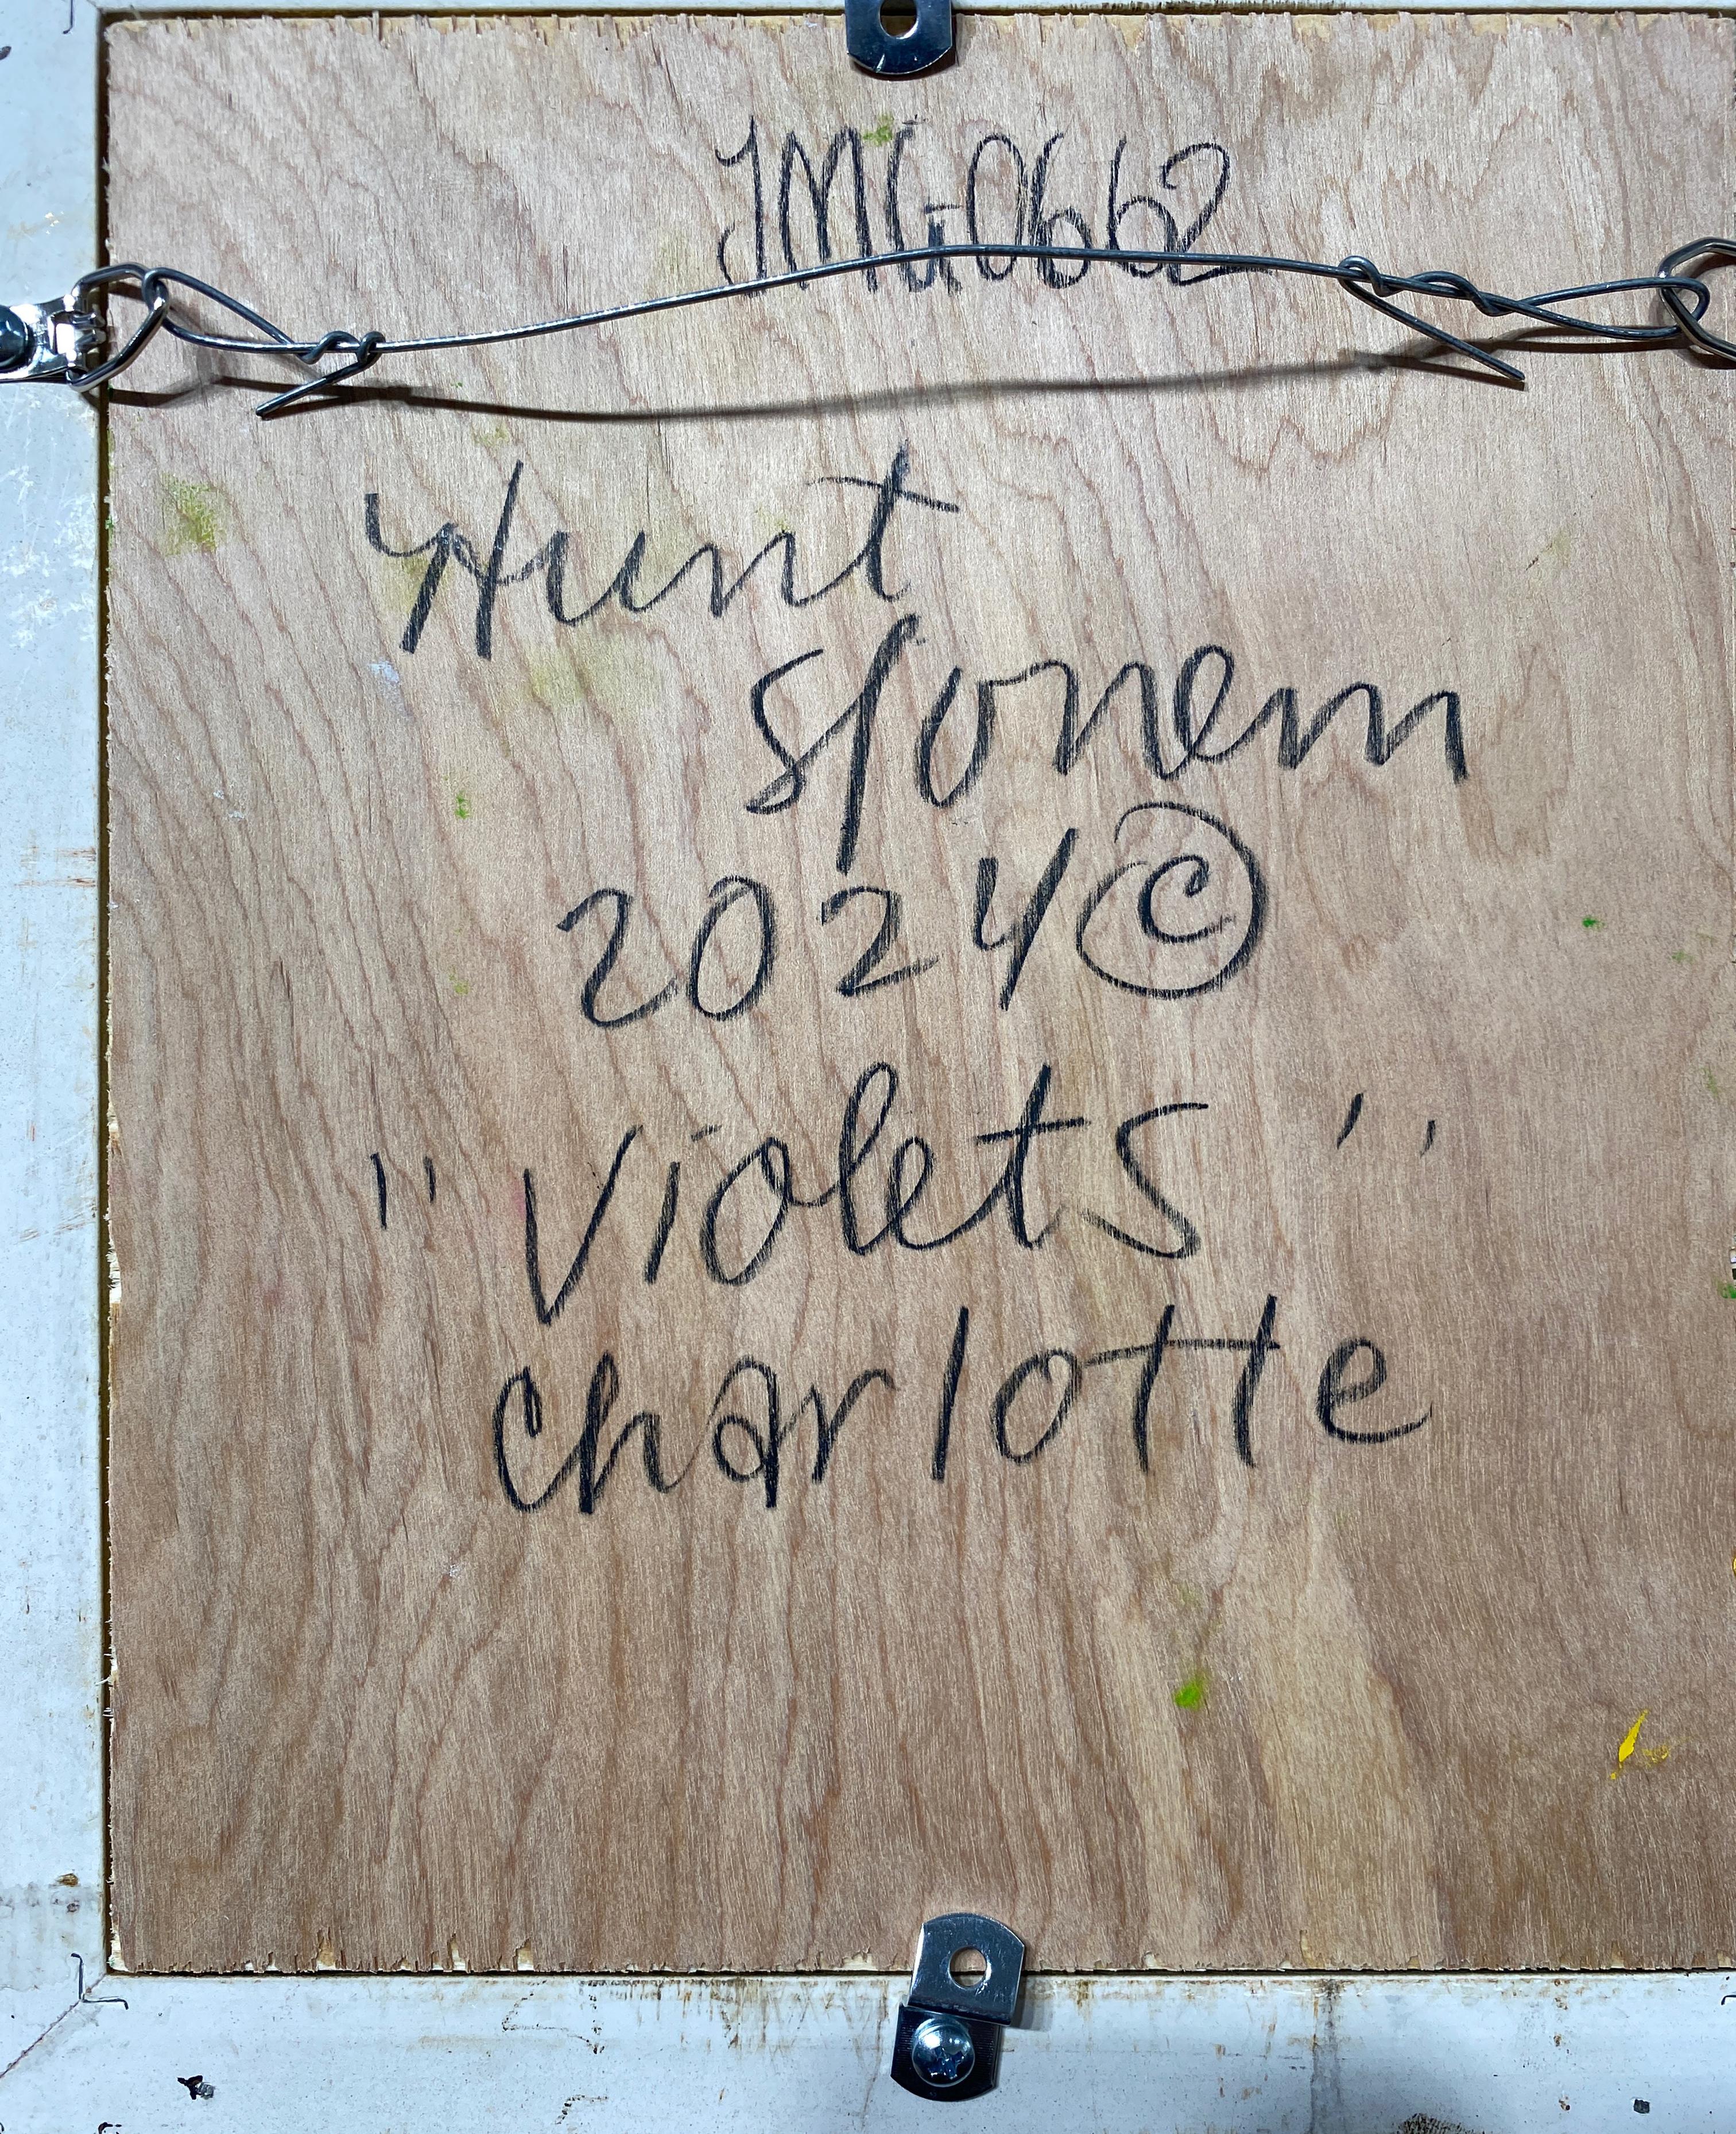 JMG0662
Hunt
Slonem
2024 ©
"Violets"
Charlotte